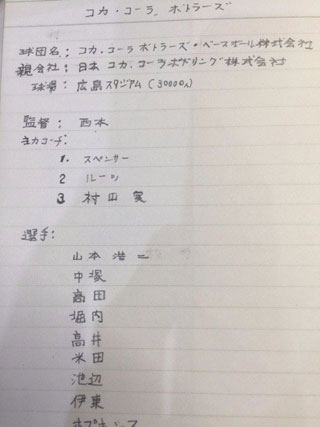 コカ・コーラ ボトラーズ
球団名： コカ・コーラ ボトラーズ・ベースボール株式会社
親会社： 日本コカ・コーラボトリング株式会社
球場： 広島スタジアム（30000人）
監督： 西本
主力コーチ：
1. スペンサー
2 ルーツ
3 村山 実
選手：
山本 浩二
中塚
高田
堀内
高井
米田
池辺
伊東
ホプキンス